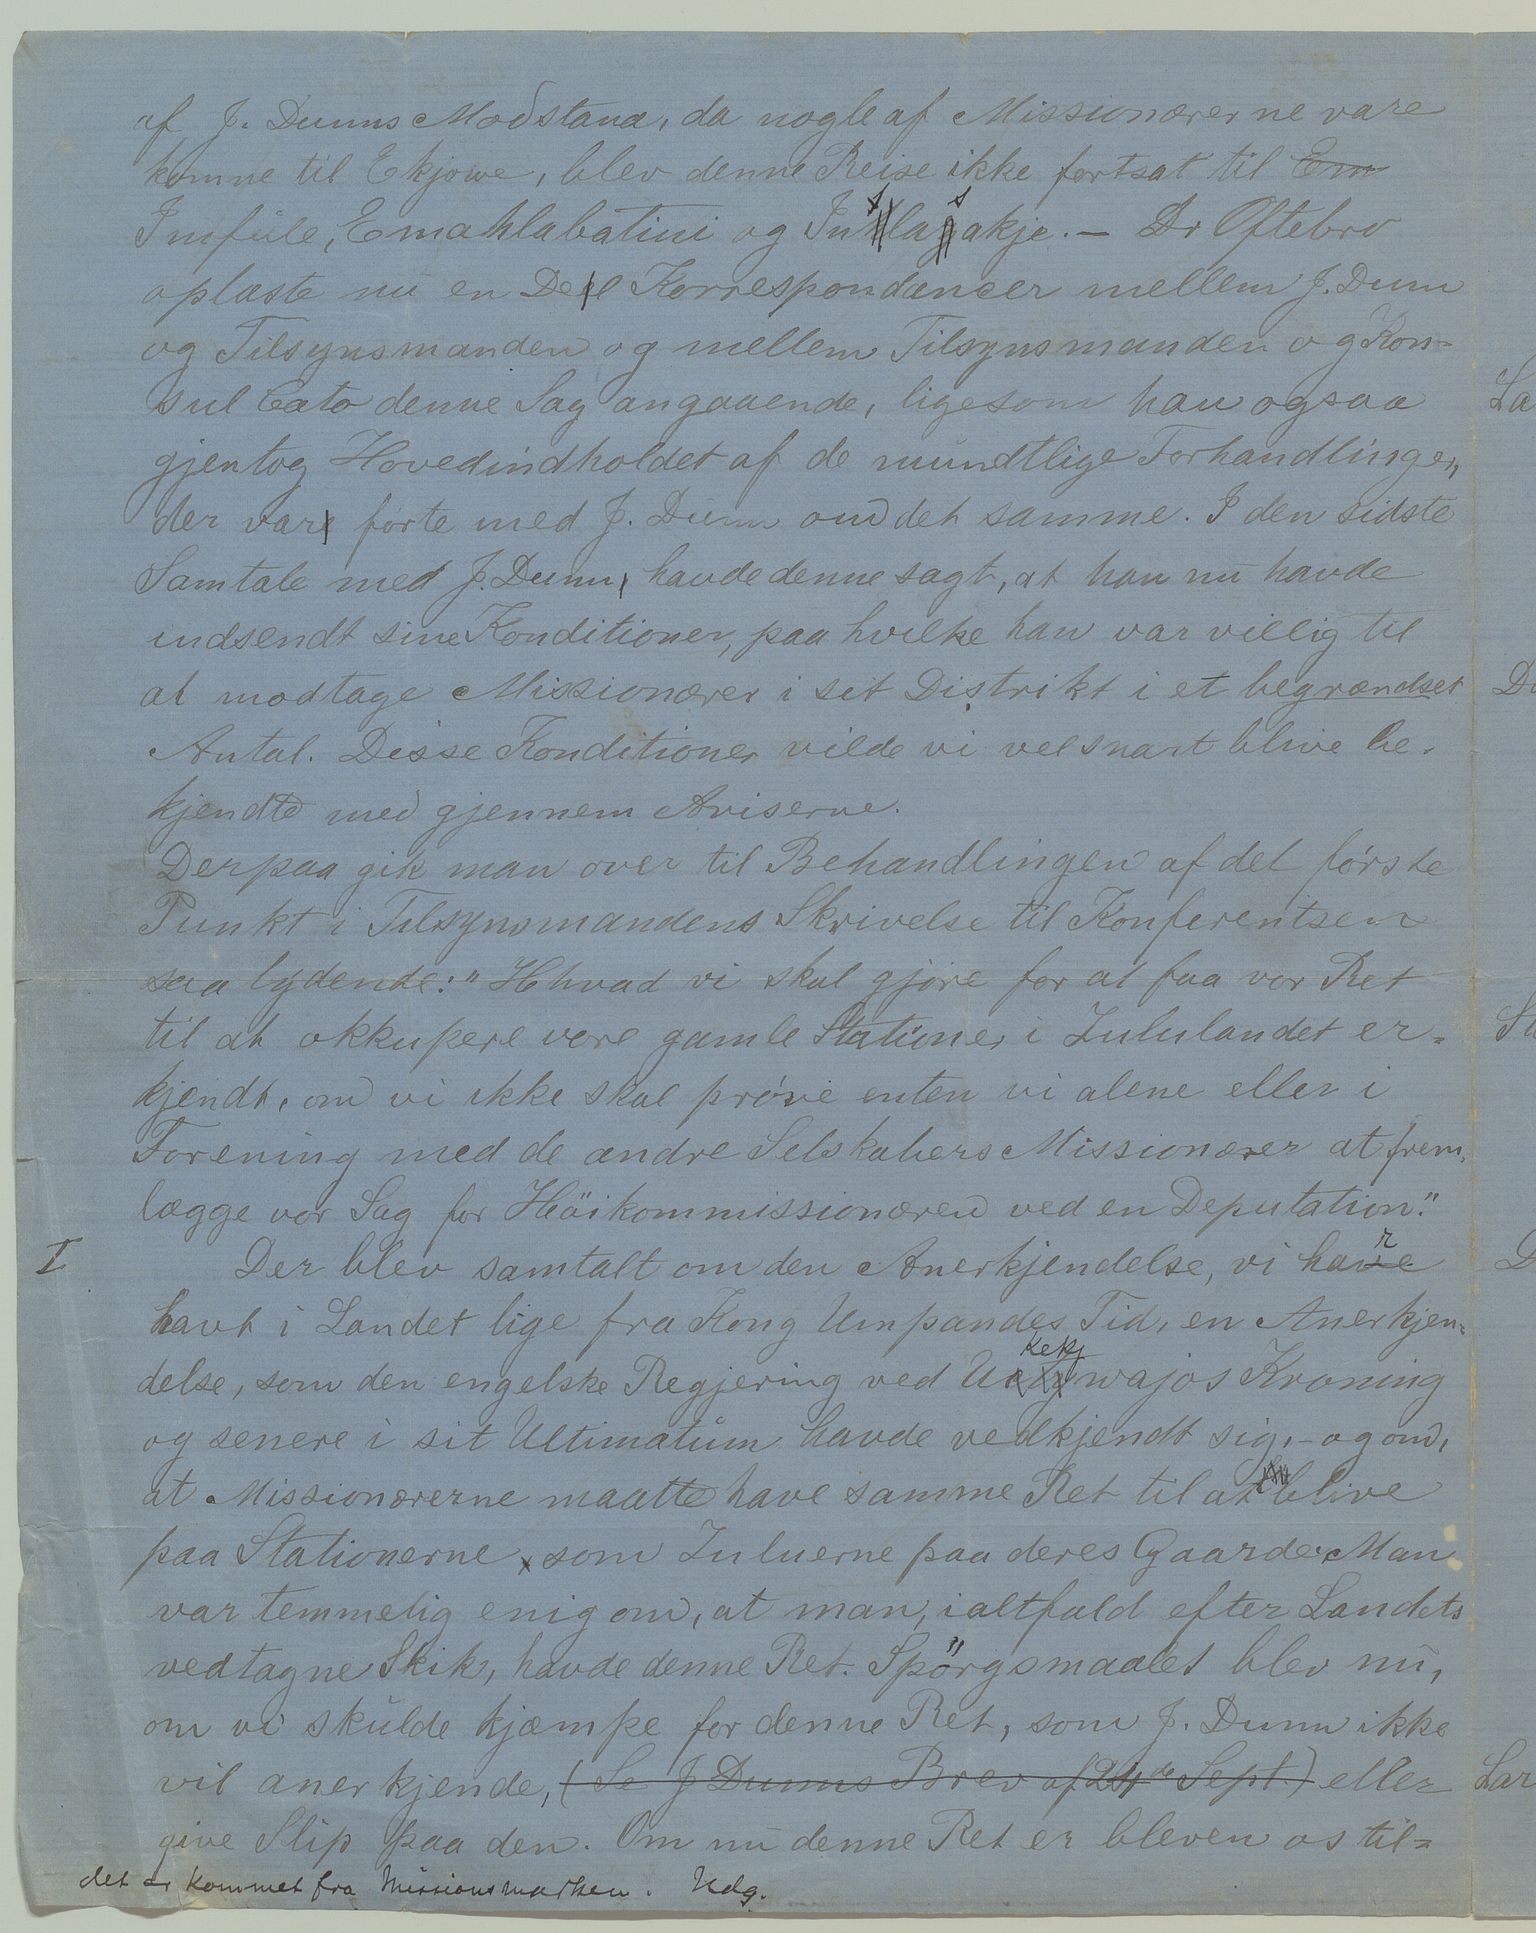 af J. Dunns Modstand, da nogle af Missionærerne vare
komne til Ekjowe, blev denne Reise ikke fortsat til Em
Imfule, Emahlabatini og Inhlasakje. — Dr Oftebro
oplæste nu en Del Korrespondancer mellem J. Dunn
og Tilsynsmanden og mellem Tilsynsmanden og Kon-
sul Cato denne Sag angaaende, ligesom han ogsaa
gjentog Hovedindholdet af de mundtlige Forhandlinger,
der var førte med J. Dunn om det samme. I den sidste
Samtale med J. Dunn, havde denne sagt, at han nu havde
indsendt sine Konditioner, paa hvilke han var villig til
at modtage Missionærer i sit Distrikt i et begrændset
Antal. Disse Konditioner vilde vi vel snart blive be-
kjendte med gjennem Aviserne.
Derpaa gik man over til Behandlingen af det første
Punkt i Tilsynsmandens Skrivelse til Konferentsen
saa lydende: "Hvad vi skal gjøre for at faa vor Ret
til at okkupere vore gamle Stationer i Zululandet er-
kjendt, om vi ikke skal prøve enten vi alene eller i
Forening med de andre Selskabers Missionærer at frem-
lægge vor Sag for Höikommissionæren ved en Deputation."
I
Der blev samtalt om den Anerkjendelse, vi har
havt i Landet lige fra Kong Umpandes Tid, en Anerkjen-
delse, som den engelske Regjering ved Ukekjwajos Kroning
og senere i sit Ultimatum havde vedkjendt sig, - og om,
at Missionærerne maatte have samme Ret til at blive
paa Stationerne som Zuluerne paa deres Gaarde. Man
var temmelig enig om, at man, ialtfald efter Landets
vedtagne Skik, havde denne Ret. Spörgsmaalet blev nu,
om vi skulde kjæmpe for denne Ret, som J. Dunn ikke
vil anerkjende, (Se J Dunns Brev af 24de Sept.) eller
give Slip paa den. Om nu denne Ret er bleven os til-
det er kommet fra Missionsmarken. Udg.